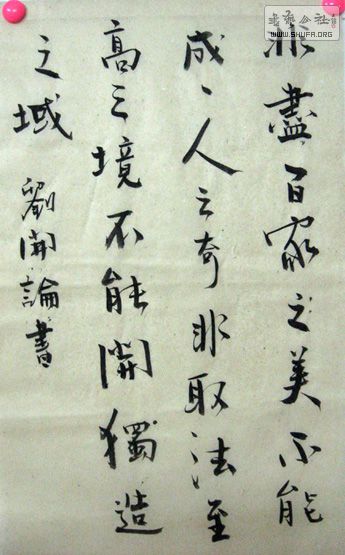 非盡百家之美不能
成一人之奇非取法至
高之境不能開獨造
之域 劉開論書
书法公社
WWW.SHUFA.ORG